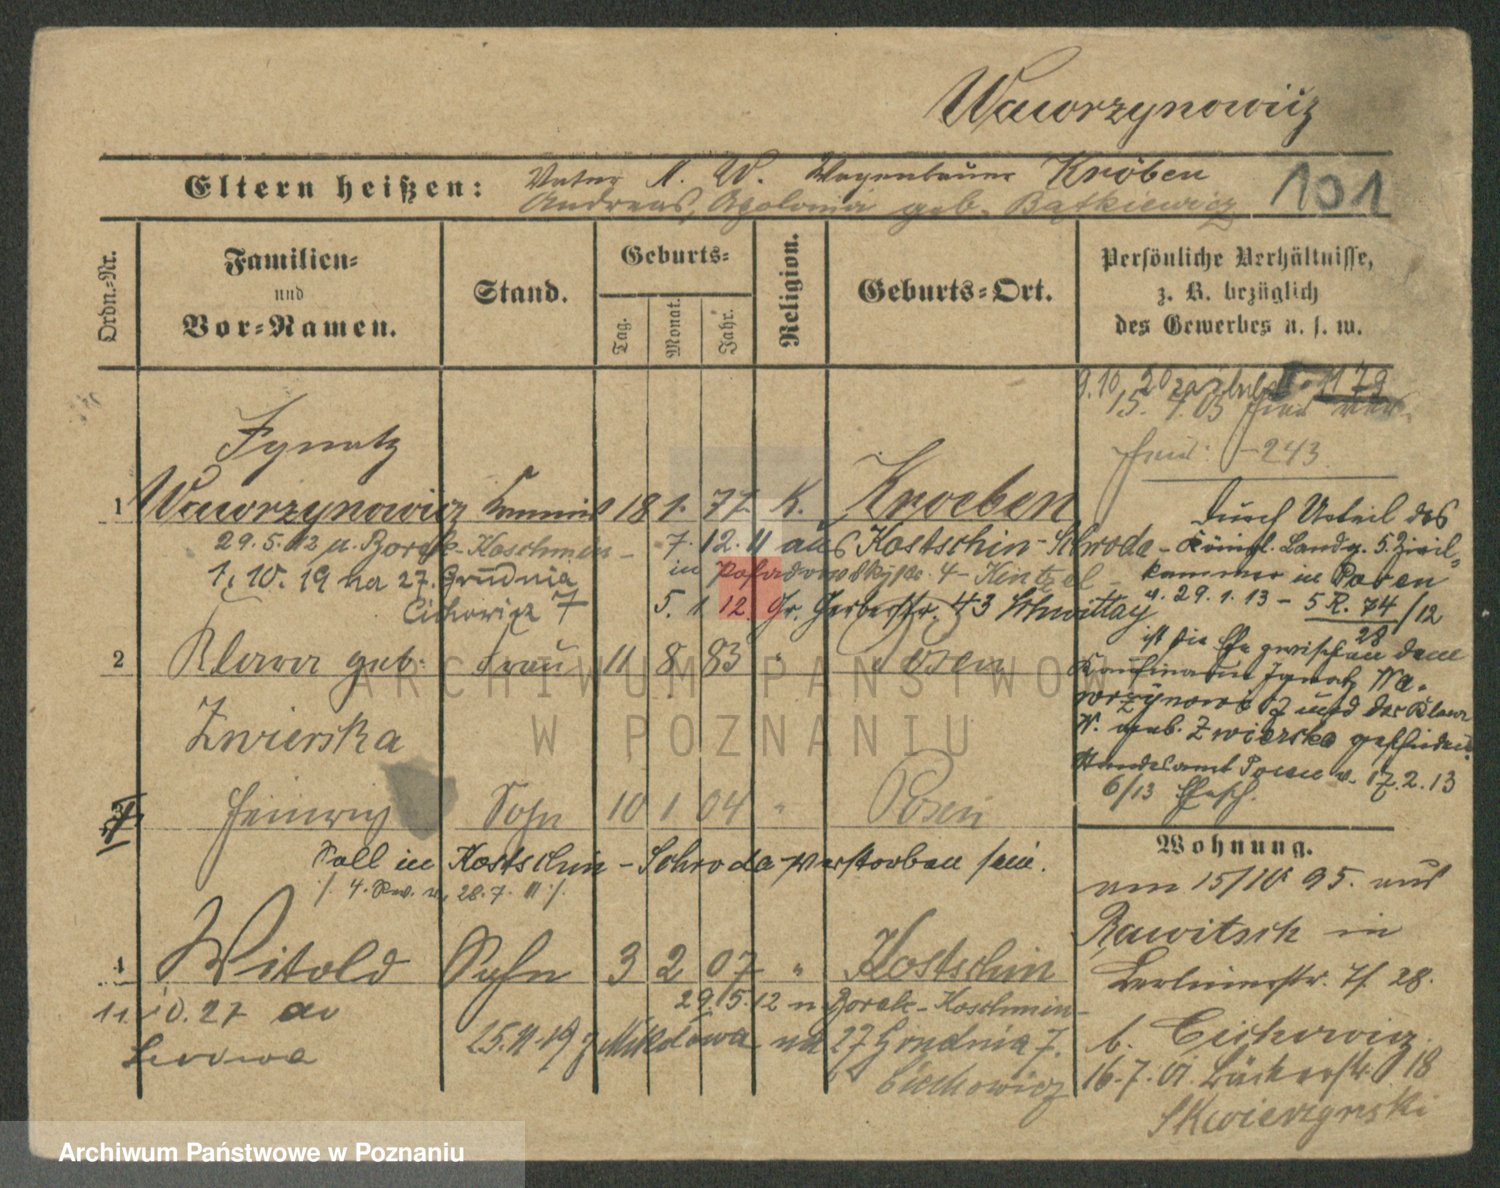 Wawrzynowicz
Eltern heißen: Vater A. W. Wagenbauer Kröben
Andreas, Apolonia geb. Batkiewicz
101
Ordn.-Nr.
Familien- und Vor-Namen.
Stand.
Geburts-
Tag. Monat. Jahr.
Religion.
Geburts-Ort.
Persönliche Verhältnisse,
z. B. bezüglich
des Gewerbes u. s. w.
9.10. 20 1179
15. 7. 03
243
Ignatz
1 Wawrzynowicz Kommis 18 1. 77 K. Kroeben
29.5.12 n. Borek-Koschmin - 7.12.11 aus Kostschin-Schroda
1. 10. 19 na 27. Grudnia in 4 - Hintzel
Cichowicz 7 5. 1. 12. Gr. Gerberstr. 43 Schwittay
Durch Urteil des
Königl. Landg. 5. Zivil-
kammer in Posen
v. 29. 1. 13 - 5 R. 74/12
28
ist die Ehe zwischen dem
Kaufmann Ignatz Wa-
wrzynowicz und der Klara
W. geb. Zwierska geschieden.
Standesamt Posen v. 17.2.13
6/13
2 Klara geb. Frau 11 8 83 " Posen
Zwierska
3 Heinrich Sohn 10 1 04 " Posen
Soll in Kostschin-Schroda verstorben sein.
/: 4. Rev. v. 28.7.11 :/
4 Witold Sohn 3 2 07 " Kostschin
29.5.12 n Borek-Koschmin
11. 10. 27 do
Lwowa
25.11.19 z Mikolowa na 27 Grudnia 7.
Cichowicz
Wohnung.
am 15/10 95. aus
Rawitsch in
Berlinerstr. 7/ 28.
b. Cichowicz
16.7.01. Bäckerstr. 18
Skwierzynski
ARCHIWUM PAŃSTWOWE
W POZNANIU
Archiwum Państwowe w Poznaniu